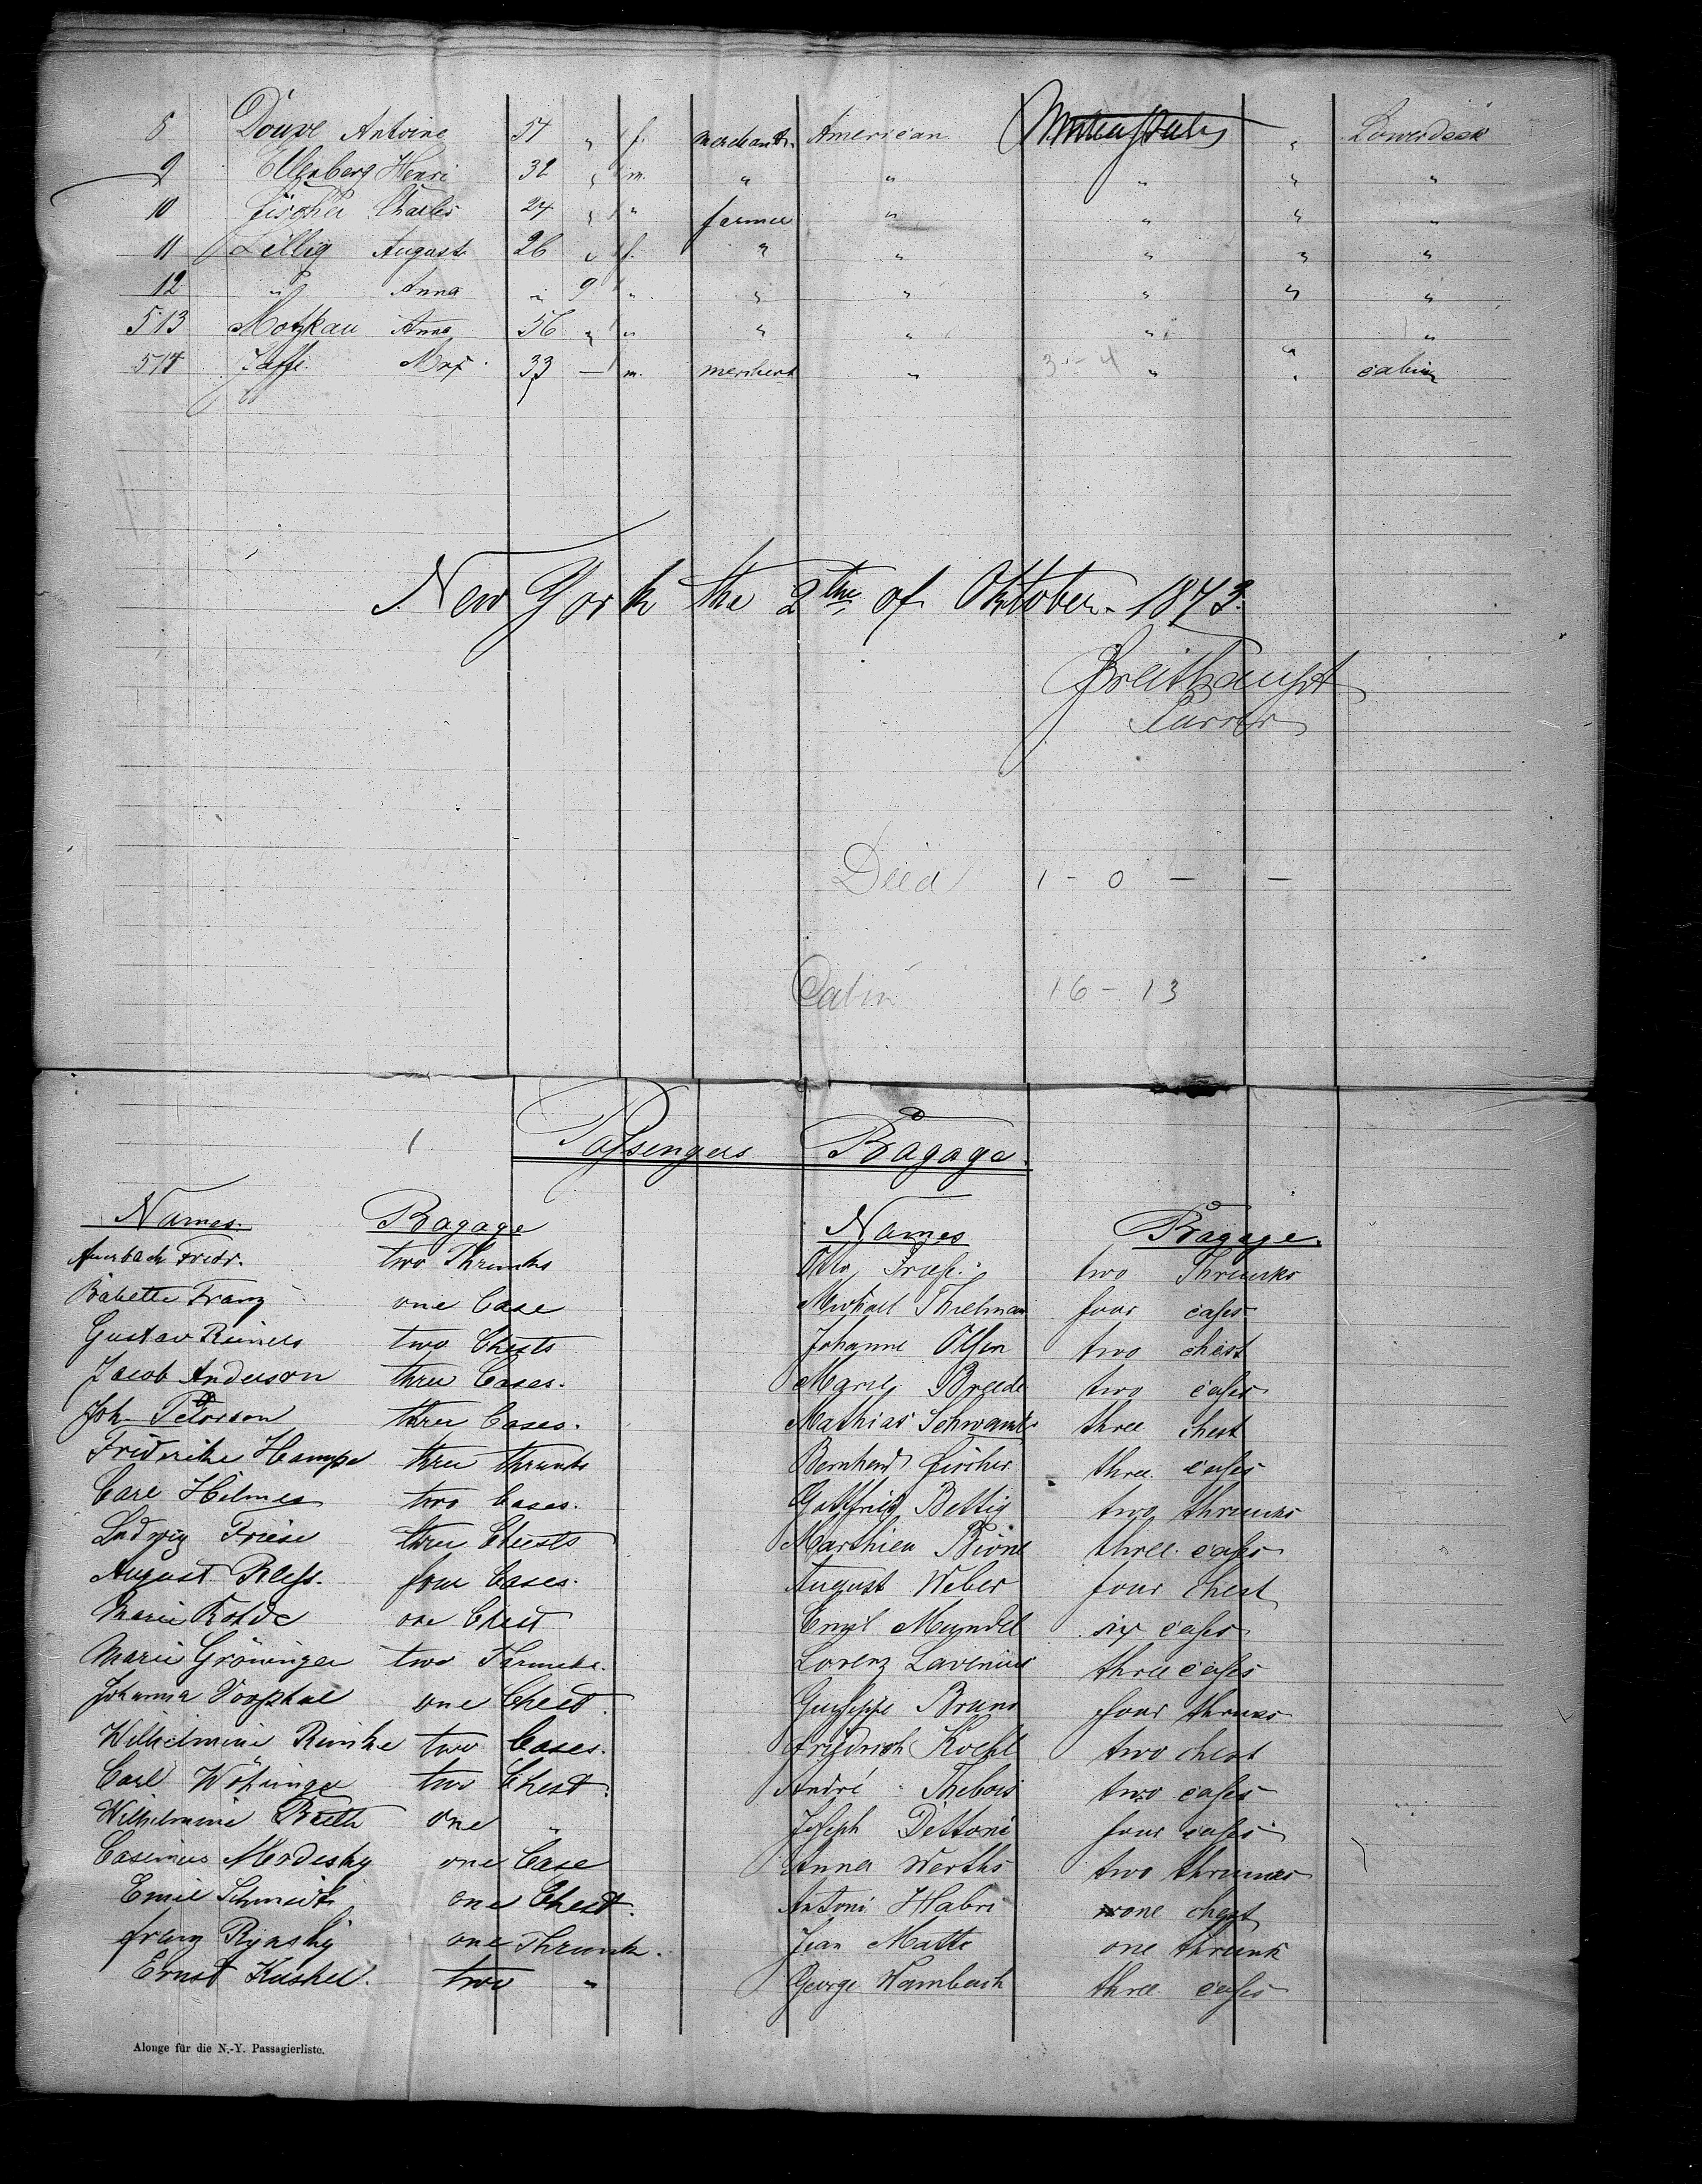 8 Douve Antoine 54 " f. merchants. American United States " Lowerdeck
9 Ellenberg Henri 32 " m. " " " " "
10 Fischer Charles 24 " " farmer " " " "
11 Lillig August 26 " f. " " " " "
12 " Anna " 9 " " " " " "
513 Motzkau Anna 56 " " " " " "
514 Jaffe Max 33 — m. merchant " 3 - 4 " " cabin
New York the 2the of Oktober 1873.
Breithaupt
Purser
Died 1 - 0 - -
Cabin 16 - 13
Passengers Bagage.
Names. Bagage Names Bagage.
Auerbach Fredr. two Thrunks Otto Friese two Thruncks
Babette Franz one Case Michael Thielman four cases
Gustav Reiners two Chests Johanne Olsen two chest
Jacob Anderson three Cases. Marie Breede two cases
Joh. Peterson three Cases. Mathias Schwantz three chest
Fridrike Hampe three thrunks Bernhard Fircher three cases
Carl Hilmes two Cases. Gottfried Bettig two thruncks
Ludwig Friese three Chests Marthieu Bione three cases
August Pless. four Cases. August Weber four chest
Marie Rohde one Chest Emil Meyndel six cases
Marie Gröninger two Thrunks. Lorenz Lavenius three cases
Johanna Voophal one Chest. Guiseppe Bruno four thrunks
Wilhelmine Reinke two Cases. Friedrich Koehl two chest
Carl Wöhringer two Chest. André Thebois two cases
Wilhelmine one " Joseph Dettoni four cases
Casimir Modesky one Case Anna Werths two thruncks
Emil Schmidt one Chest. Antoni Habri one chest
Franz Rynsky one Thrunk. Jean Matte one thrunk
Ernst Kuskel. two " George Wambach three cases
Alonge für die N.-Y. Passagierliste.